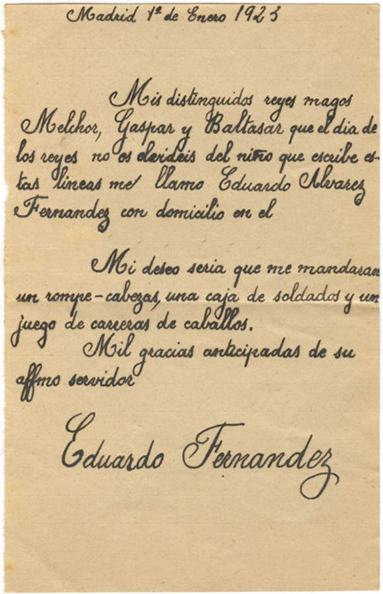 Madrid 1º de Enero 1923
Mis distinguidos reyes magos
Melchor, Gaspar y Baltasar que el dia de
los reyes no os olvideis del niño que escribe es-
tas lineas me llamo Eduardo Alvarez
Fernandez con domicilio en el
Mi deseo seria que me mandaran
un rompe-cabezas, una caja de soldados y un
juego de carreras de caballos.
Mil gracias anticipadas de su
affmo servidor
Eduardo Fernandez